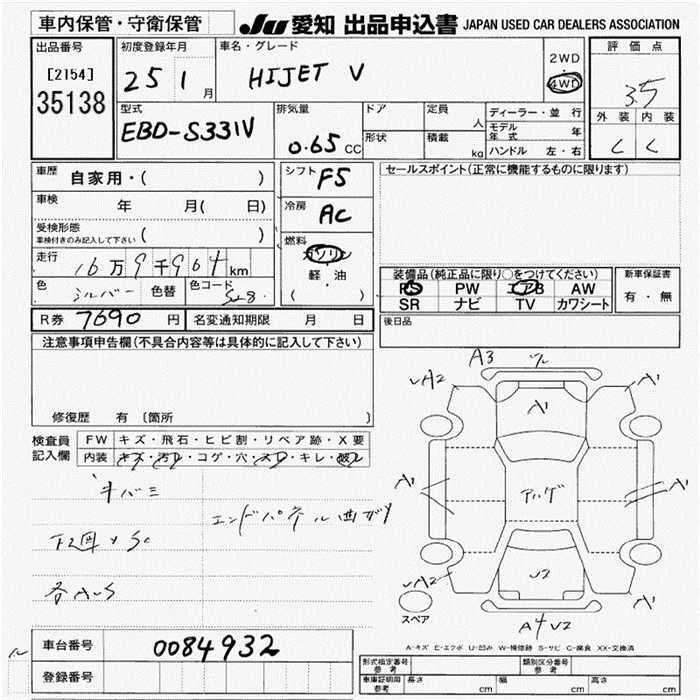 車内保管・守衛保管
JU 愛知 出品申込書 JAPAN USED CAR DEALERS ASSOCIATION
出品番号
[2154]
35138
初度登録年月
25 1 月
車名・グレード
HIJET V
2WD
・
4WD
評価点
3.5
外装 内装
C C
型式
EBD-S331V
排気量
0.65 CC
ドア
形状
定員
人
積載
kg
ディーラー・並行
モデル年式 年
ハンドル 左・右
車歴
自家用・( )
車検
年 月( 日)
受検形態
車検付きのみ記入して下さい ( )
走行
16万9千964 km
色
シルバー
色替
色コード
S28
R券 7690 円
名変通知期限 月 日
シフト
F5
冷房
AC
燃料
ガソリン
軽・油
( )
セールスポイント(正常に機能するものに限ります)
装備品(純正品に限り○をつけてください)
PS PW エアB AW
SR ナビ TV カワシート
新車保証書
有・無
後日品
注意事項申告欄(不具合内容等は具体的に記入して下さい)
修復歴 有 〔箇所 〕
検査員記入欄
FW キズ・飛石・ヒビ割・リペア跡・X要
内装 キズ・汚レ・コゲ・穴・スレ・キレ・破レ
キバミ
エンドパネル曲ガリ
下廻サSC
各AUS
A3
A2
A1
A1
A1
A1
アハゲ
U2
A2
A1
A4 V2
スペア
A-キズ E-エクボ U-凹み W-補修跡 S-サビ C-腐食 XX-交換済
車台番号
0084932
登録番号
形式指定番号
参考
類別区分番号
参考
車庫証明用
参考
長さ cm
幅 cm
高さ cm